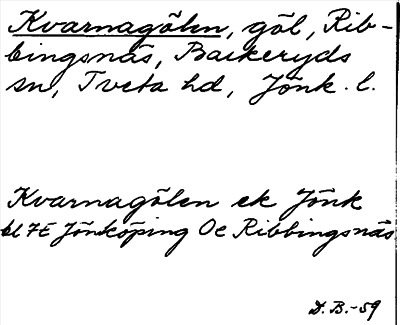 Kvarnagölen, göl, Rib-
bingsnäs, Barkeryds
sn, Tveta hd, Jönk. l.
Kvarnagölen ek Jönk
bl 7E Jönköping Oc Ribbingsnäs
D. B. -59